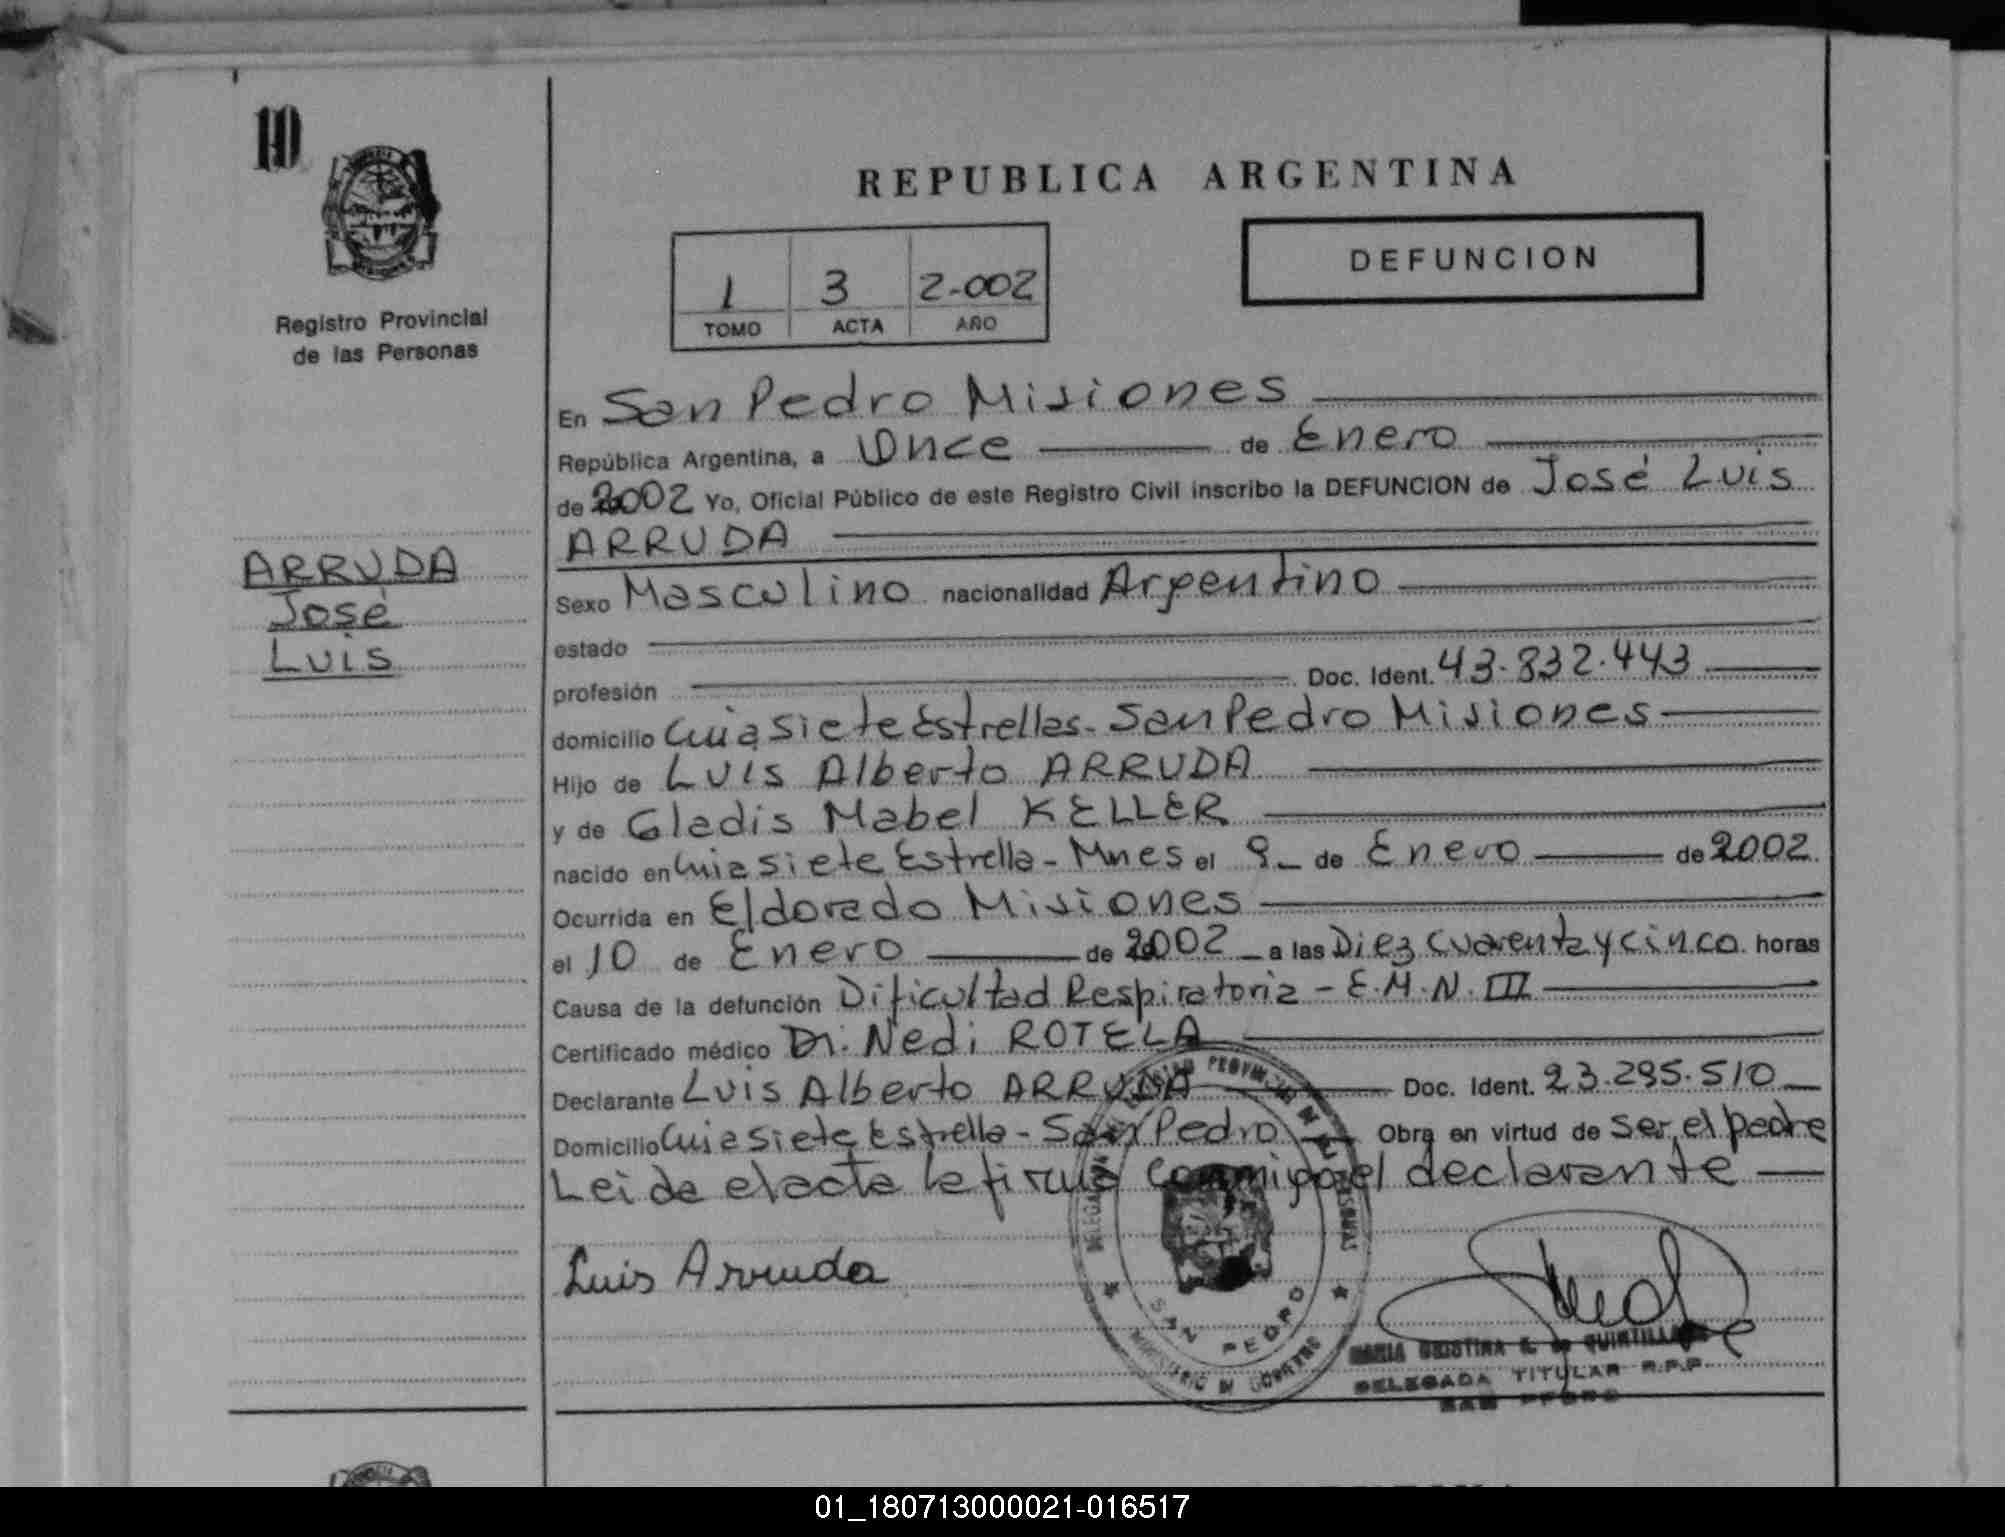 10
REPUBLICA ARGENTINA
Registro Provincial
de las Personas
1 3 2-002
TOMO ACTA AÑO
DEFUNCION
En San Pedro Misiones
República Argentina, a Once de Enero
de 2002 Yo, Oficial Público de este Registro Civil inscribo la DEFUNCION de José Luis
ARRUDA
ARRUDA
José
Luis
Sexo Masculino nacionalidad Argentino
estado
profesión Doc. Ident. 43.832.443
domicilio Cuia Siete Estrellas - San Pedro Misiones
Hijo de Luis Alberto ARRUDA
y de Gladis Mabel KELLER
nacido en Cuia Siete Estrella - Mnes el 9 de Enero de 2002
Ocurrida en Eldorado Misiones
el 10 de Enero de 2002 a las Diez cuarenta y cinco horas
Causa de la defunción Dificultad Respiratoria - E.M.N. III
Certificado médico Dr. Nedi ROTELA
Declarante Luis Alberto ARRUDA Doc. Ident. 23.295.510
Domicilio Cuia Siete Estrella - San Pedro Obra en virtud de ser el padre
Leida el acta la firma conmigo el declarante
Luis Arruda
SAN PEDRO
MINISTERIO DE GOBIERNO
MARIA CRISTINA de QUINTILLAN
DELEGADA TITULAR R.P.P.
SAN PEDRO
01_180713000021-016517